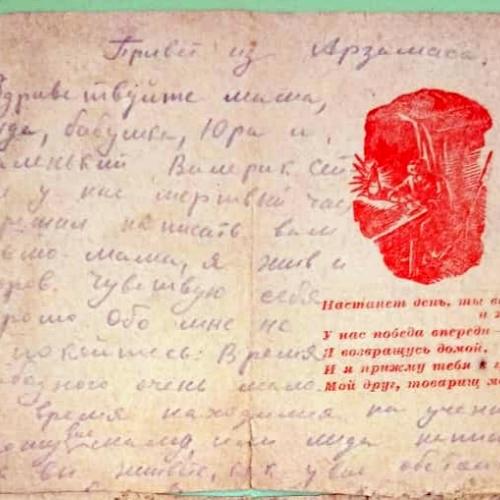 Привет из Арзамаса.
Здравствуйте мама,
бабушка, Юра и
маленький Валерик. Сей
у нас мертвый час
решил написать вам
мама, я жив и
Чувствую себя
Обо мне не
покойтесь. Время
очень мало.
время находимся на учен
маму, или лида напиш
к вы живете, как у вас обстан
Настанет день, ты в
и
У нас победа впереди
Я возвращусь домой,
И я прижму тебя к
Мой друг, товарищ м